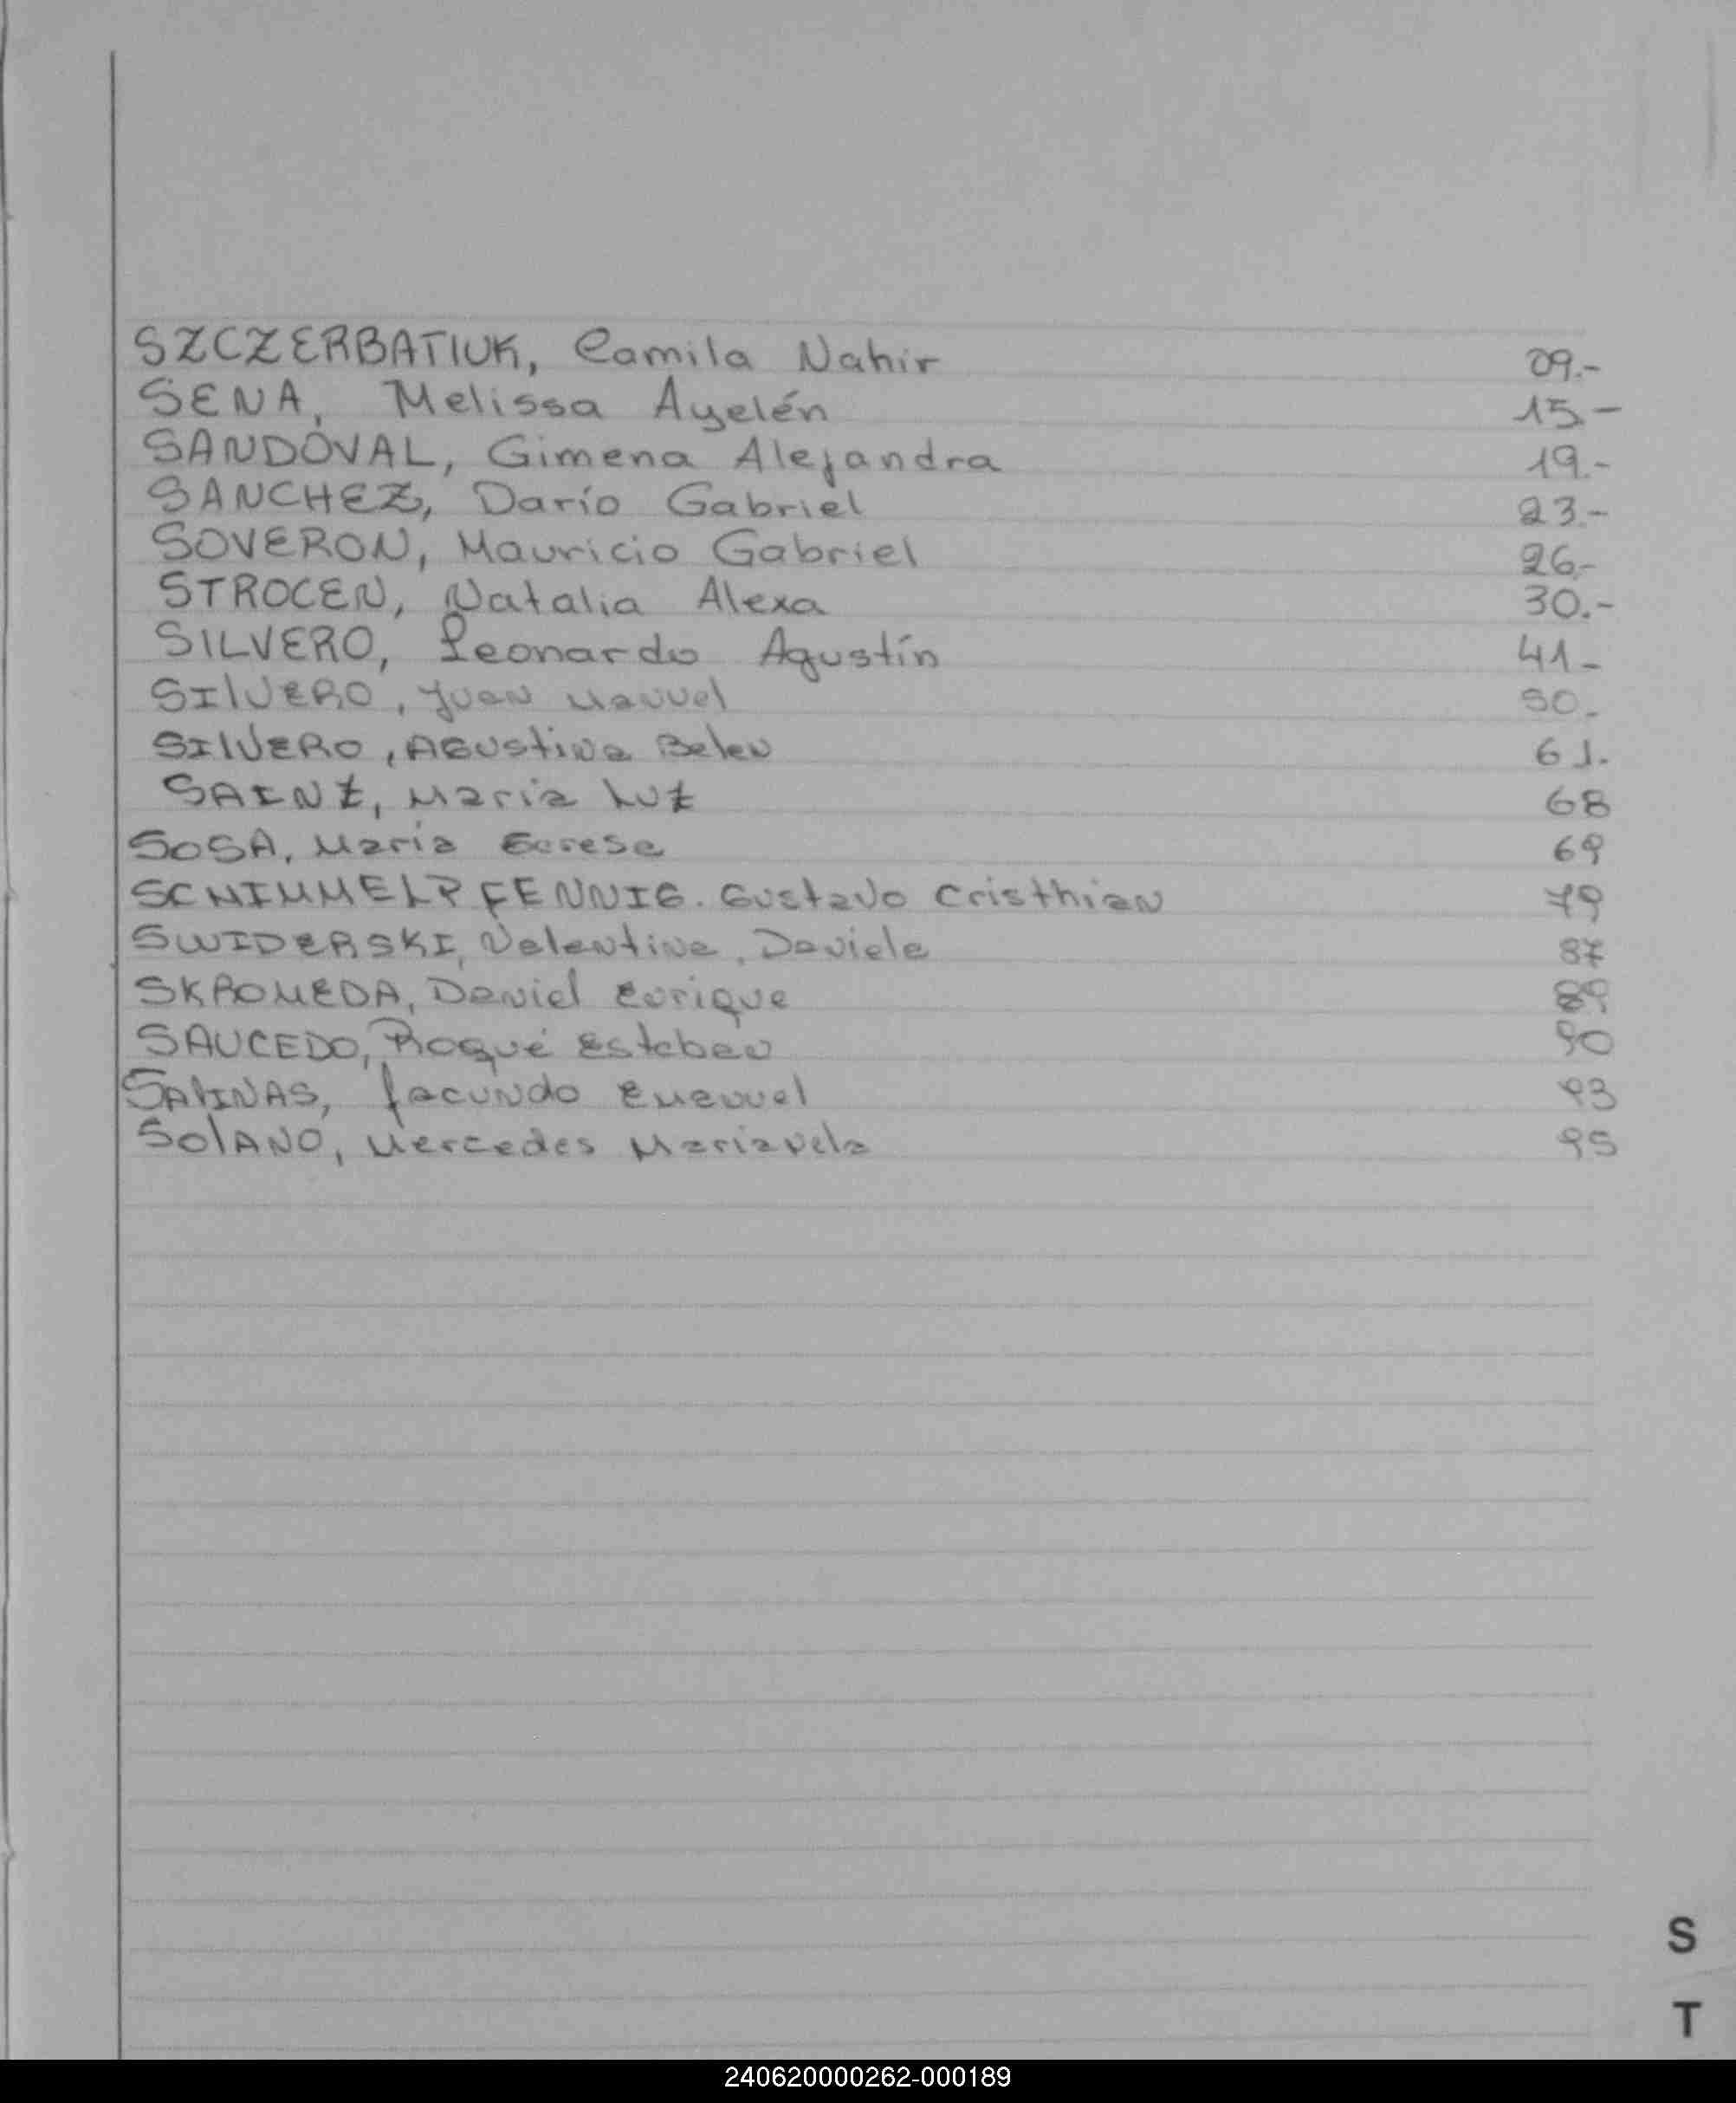 SZCZERBATIUK, Camila Nahir 09.-
SENA, Melissa Ayelén 15.-
SANDOVAL, Gimena Alejandra 19.-
SANCHEZ, Darío Gabriel 23.-
SOVERON, Mauricio Gabriel 26.-
STROCEN, Natalia Alexa 30.-
SILVERO, Leonardo Agustín 41-
SIlVERO, Juan Manuel 50.
SIlVERO, AGUstina Belen 61.
SAINZ, Maria Luz 68
SOSA, María 69
SCHIMMELPFENNIG. Gustavo Cristhian 79
SWIDERSKI, Valentina, Daniela 87
SKROMEDA, Daniel Enrique 89
SAUCEDO, Roque Esteban 90
SALINAS, facundo Emanuel 93
SolANO, Mercedes Marianela 95
S
T
240620000262-000189